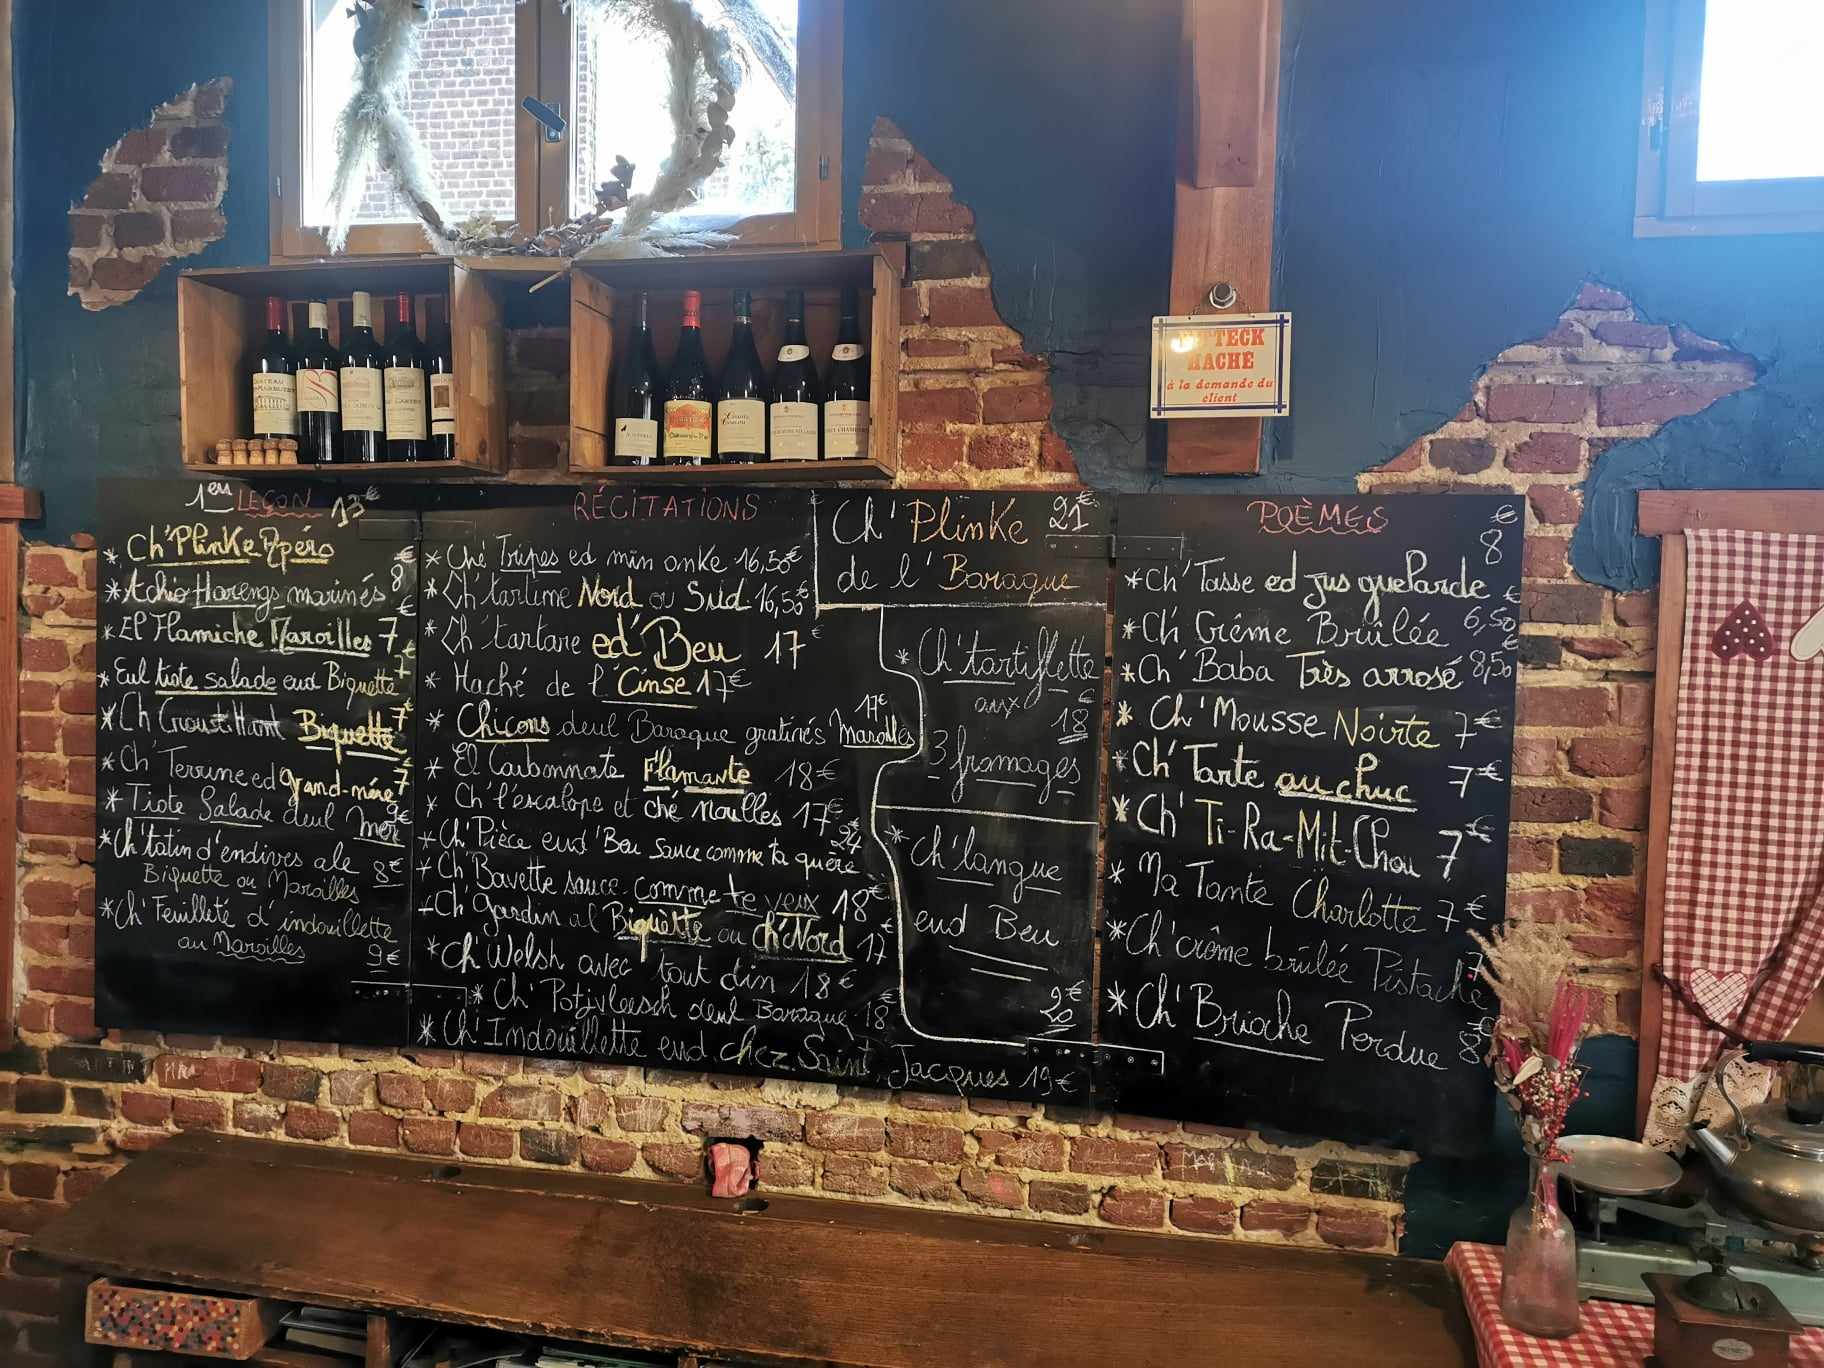 HACHÉ
à la demande du
client
1ers LEÇON 13€
* Ch'Plinke Apéro
* Achio Harengs marinés 8€
* El Flamiche Maroilles 7€
* Eul tiote salade eud Biquette 7€
* Ch Croustillant Biquette 7€
* Ch' Terrine ed grand-mére 7
* Tiote Salade deul Mer 9€
* Ch'tatin d'endives ale 8€
Biquette ou Maroilles
* Ch' Feuilleté d'indouillette
au Maroilles 9€
RÉCITATIONS
* Ché Tripes ed min onke 16,50€
* Ch'tartine Nord ou Sud 16,50€
* Ch'tartare ed'Beu 17€
* Haché de l'Cinse 17€
* Chicons deul Baraque gratinés Maroilles 17€
* El Carbonnate Flamante 18€
* Ch'l'escalope et ché nouilles 17€
* Ch'Pièce eud'Beu sauce comme ta quére 24€
* Ch'Bavette sauce comme te veux 18€
* Ch'gardin al Biquette ou Ch'Nord 17€
* Ch'Welsh avec tout din 18€
* Ch' Potjvleesch deul Baraque 18€
* Ch'Indouillette eud chez Saint Jacques 19€
Ch' Plinke 21€
de l'Baraque
* Ch'tartiflette
aux 18€
3 fromages
* Ch'langue
eud Beu
20€
POÈMES
* Ch'Tasse ed jus guelarde 8€
* Ch' Crême Brûlée 6,50€
* Ch' Baba Très arrosé 8,50€
* Ch'Mousse Noirte 7€
* Ch'Tarte au chuc 7€
* Ch' Ti-Ra-Mit-Chou 7€
* Ma Tante Charlotte 7€
* Ch'crôme brûlée Pistache 7
* Ch'Brioche Perdue 8€